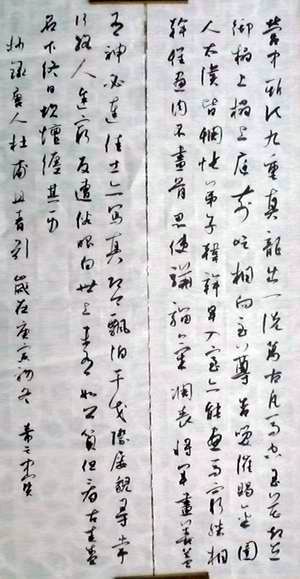 營中斯須九重真龍出一洗萬古凡馬空玉花卻在
御榻上榻上庭前屹相向至尊含笑催賜金圉
人太僕皆惆悵弟子韓幹早入室亦能畫馬窮殊相
幹惟畫肉不畫骨忍使驊騮氣凋喪將軍畫善蓋
有神必逢佳士亦寫真即今飄泊干戈際屢貌尋常
行路人途窮反遭俗眼白世上未有如公貧但看古來盛
名下終日坎壈纏其身
抄錄唐人杜甫丹青引 歲在庚寅初冬